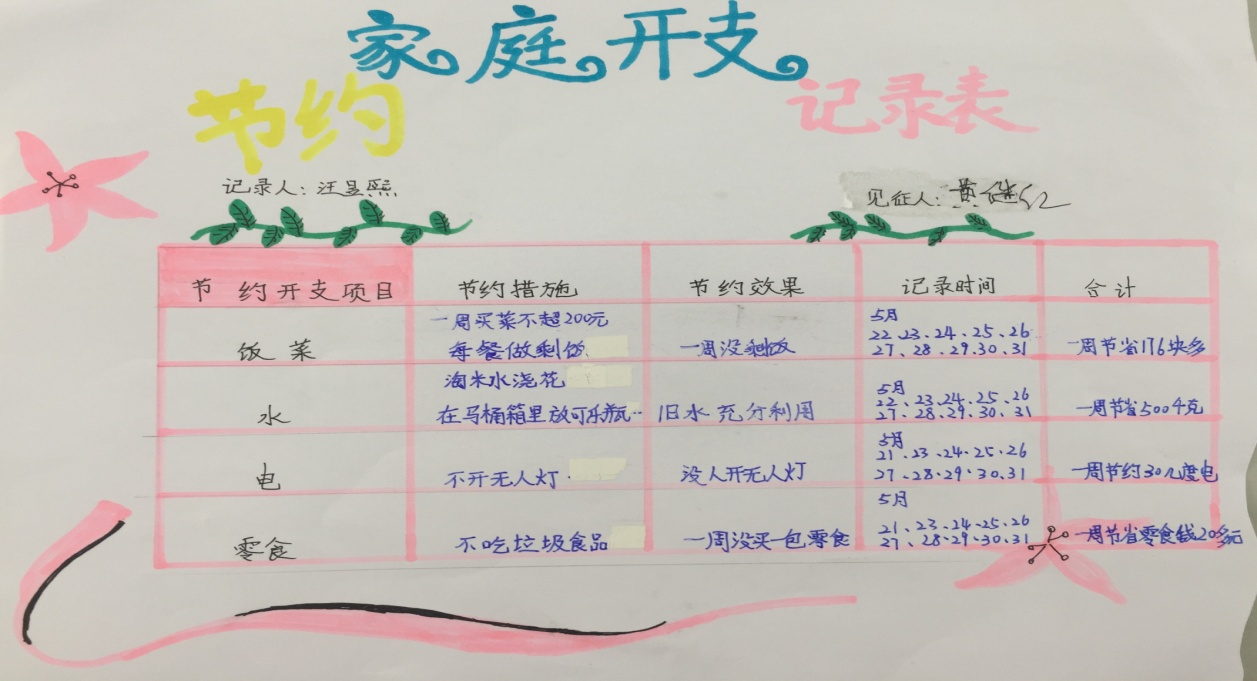 家庭开支
节约
记录表
记录人：汪昱熙
见征人：
节约开支项目 节约措施 节约效果 记录时间 合计
饭菜 一周买菜不超200元 每餐做剩饭 一周没剩饭 5月 22.23.24、25、26 27、28、29.30、31 一周节省176块多
水 淘米水浇花 在马桶箱里放可乐瓶… 旧水充分利用 5月 22、23.24、25、26 27、28、29、30、31 一周节省500千克
电 不开无人灯. 没人开无人灯 5月 21、23·24·25·26 27、28·29·30、31 一周节约30几度电
零食 不吃垃圾食品 一周没买一包零食 5月 21、23、24、25、26 27、28、29、30、31 一周节省零食钱20多元